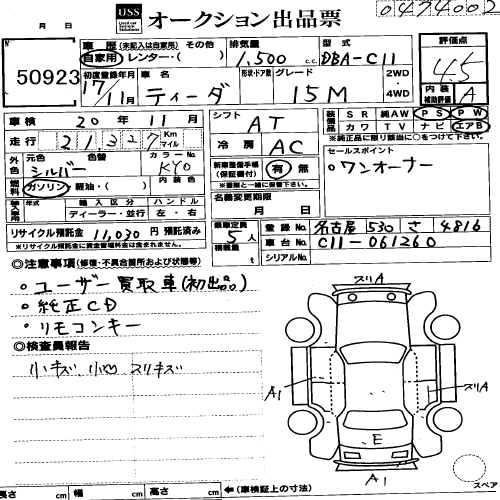 USS オークション出品票 0474002
月 日
50923
車歴 (未記入は自家用) その他 排気量 型式 評価点
自家用 レンター・( ) 1,500 c.c. DBA-C11 4.5
初度登録年月 車名 形状・ドア数 グレード 2WD 内装
17/11月 ティーダ 15M 4WD 補助評価 A
車検 20年 11月 シフト AT 装備品 SR 純AW PS PW
走行 21327 Km マイル カワ TV ナビ エアB
※純正品に限り該当に○をつけて下さい
外色 元色 色替 カラーNo. 冷房 AC セールスポイント
シルバー KY0 内装色 ワンオーナー
新車整備手帳 (保証書付) 有 無
※書類と一緒に保管下さい
燃料 ガソリン・軽油・( )
名義変更期限 月 日
輸入車 年式 輸入区分 ハンドル
ディーラー・並行 左・右
乗車定員 5人 登録No. 名古屋 530 さ 4816
リサイクル預託金 11,030円 預託済み
※リサイクル預託金に資金管理料金は含まれません。
積載量 t 車台No. C11-061260
シリアルNo.
◎注意事項 (修復・不具合箇所および状態等)
・ユーザー買取車(初出品)
・純正CD
・リモコンキー
◎検査員報告
小キズ 小凹 スリキズ
スリA
A1
スリA
E
A1
スペア
長さ cm 幅 cm 高さ cm ←(車検証上の寸法)